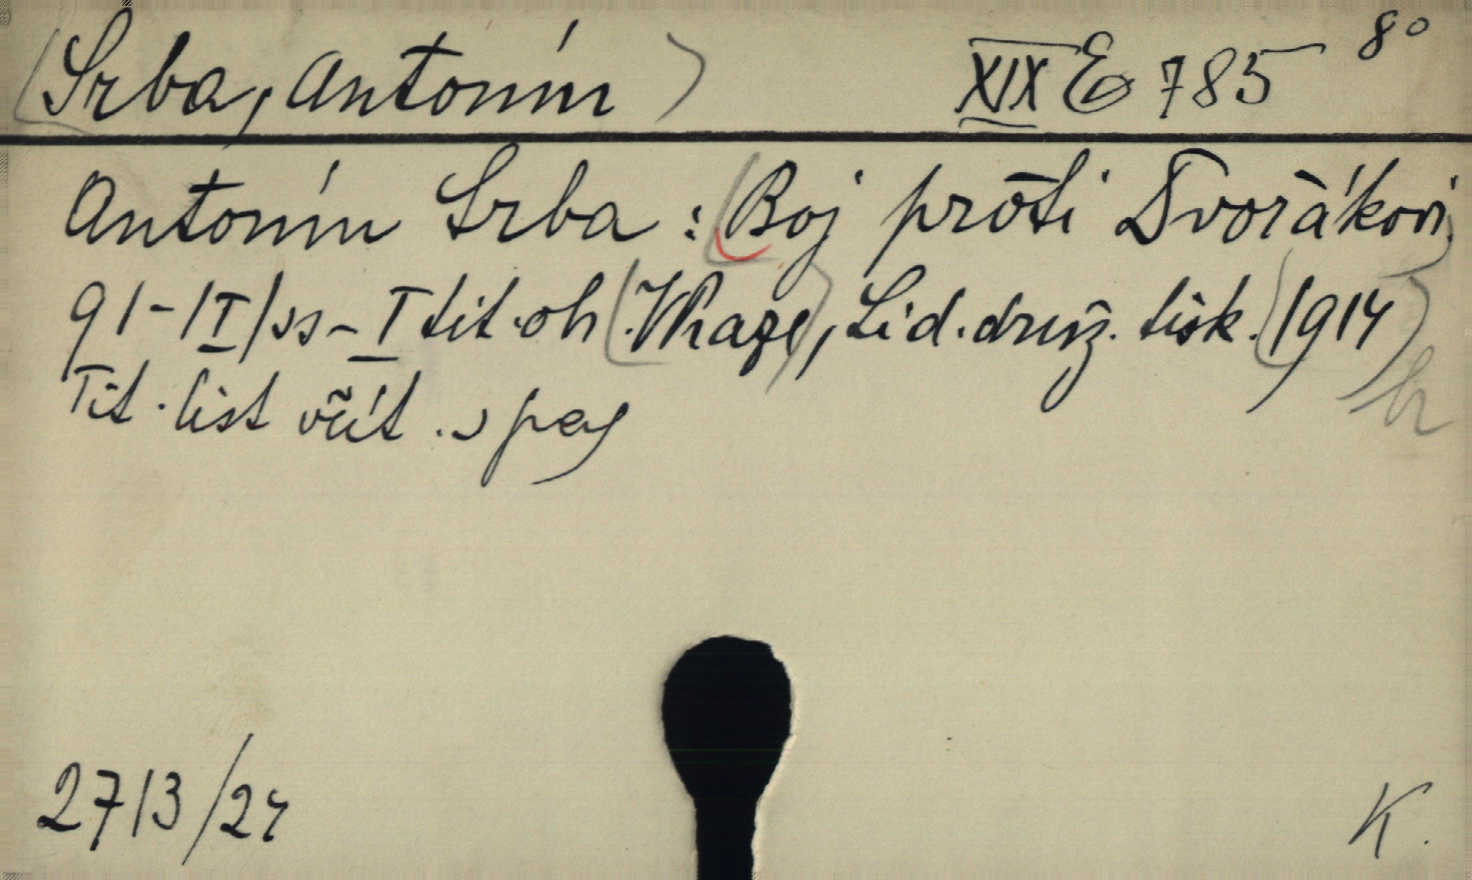 (Srba, Antonín) XIX E 785 8°
Antonín Srba: (Boj proti Dvořákovi.)
91-/I/ss-I tit. ob (V Praze), Lid. druž. tisk. (1914)
Tit. list včít. v pag
2713/24 K.